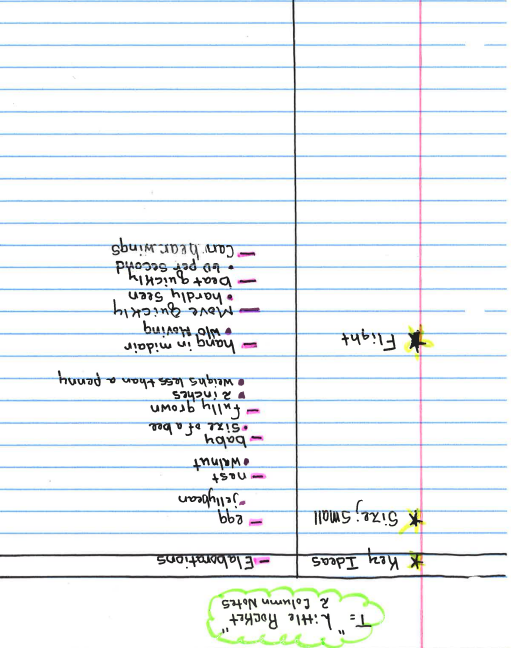 T= "Little Rocket"
2 Column Notes
★ Key Ideas – Elaborations
★ Size: Small – egg
• jellybean
– nest
• walnut
– baby
• size of a bee
– fully grown
• 2 inches
• weighs less than a penny
★ Flight – hang in midair
• w/o moving
– Move Quickly
• hardly seen
– beat quickly
• 60 per second
– Can hear wings